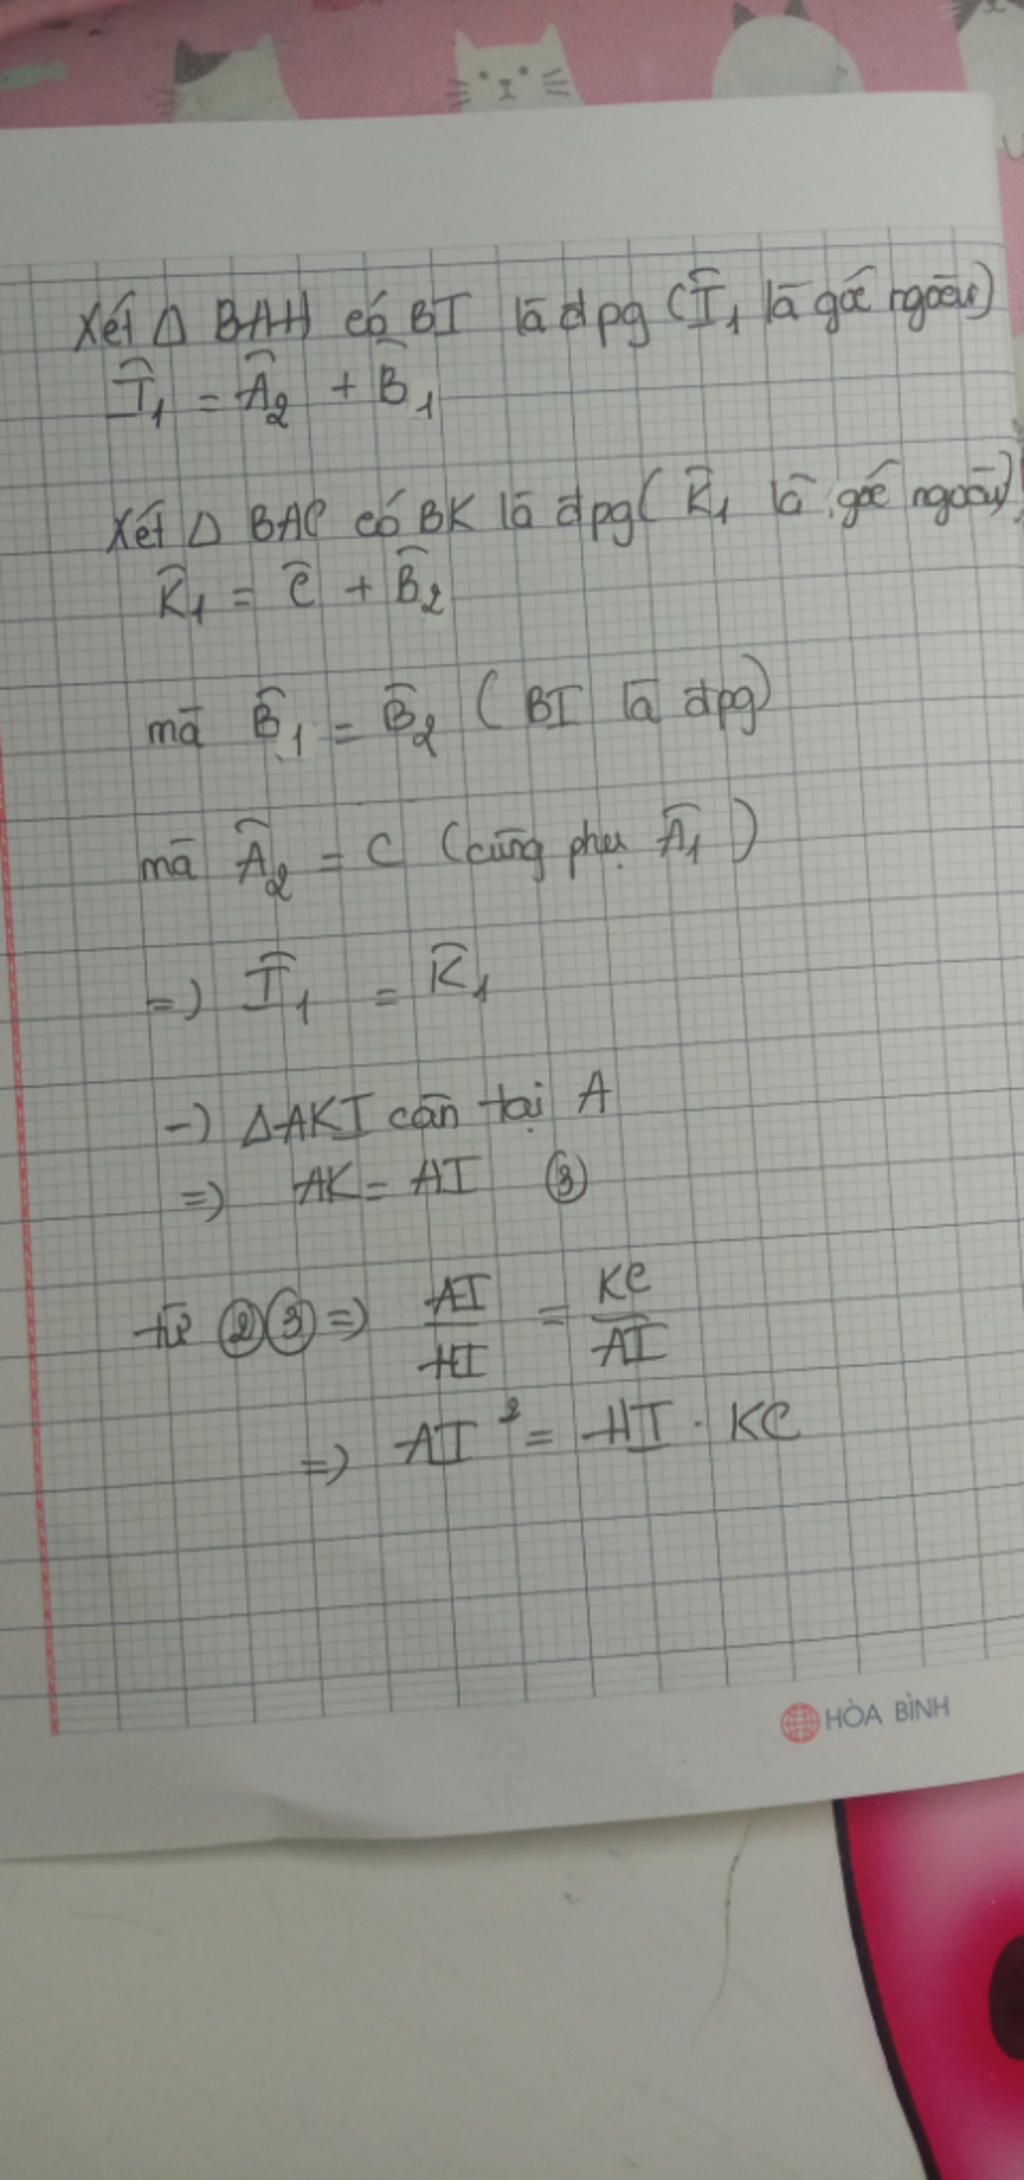 Xét Δ BAH có BI là đpg (Î₁ là góc ngoài)
Î₁ = Â₂ + B̂₁
Xét Δ BAC có BK là đpg (K̂₁ là góc ngoài)
K̂₁ = Ĉ + B̂₂
mà B̂₁ = B̂₂ (BI là đpg)
mà Â₂ = C (cùng phụ Â₁)
=> Î₁ = K̂₁
-> ΔAKI cân tại A
=> AK = AI ③
từ ②③ => AI/HI = KC/AI
=> AI² = HI . KC
HÒA BÌNH